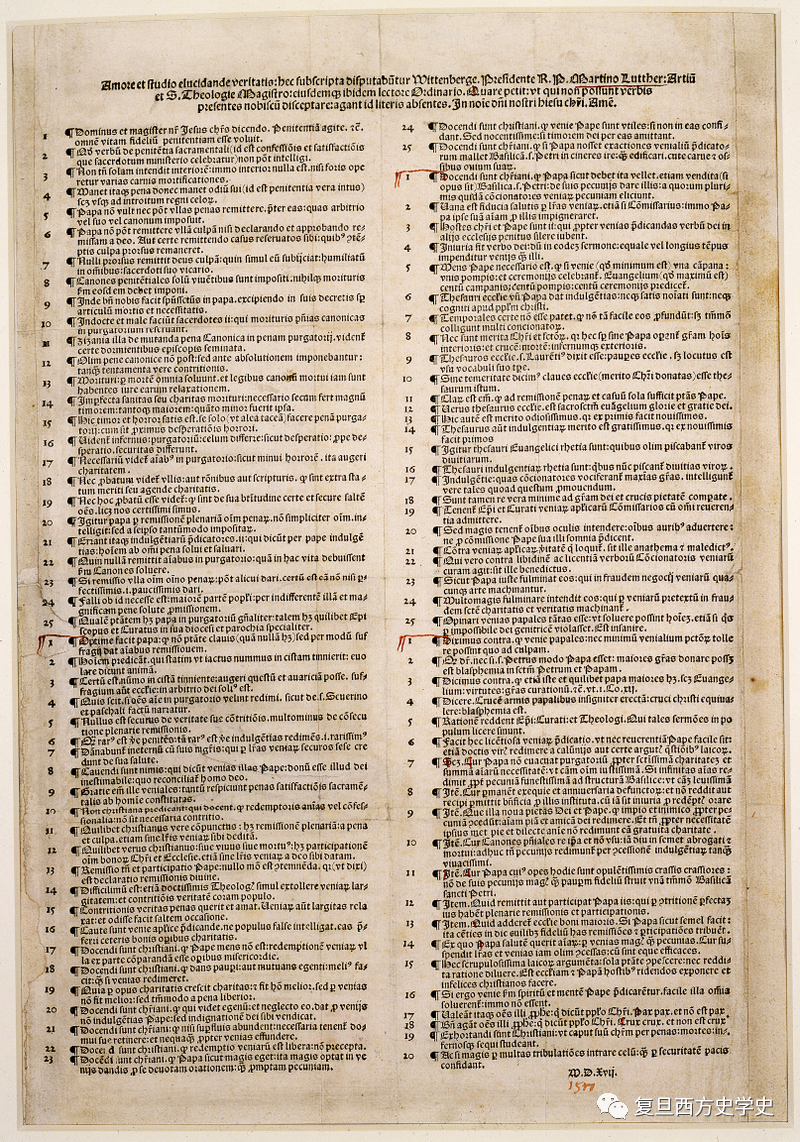 Amore et studio elucidande veritatis: hec subscripta disputabũtur Wittenberge. Presidente R. P. Martino Lutther: Artiũ
et S. Theologie Magistro: eiusdemq; ibidem lectore Ordinario. Quare petit: vt qui non possunt verbis
presentes nobiscũ disceptare: agant id literis absentes. In noĩe dñi nostri hiesu chři. Amẽ.
1 ¶Dominus et magister nr̃ Jesus chřs dicendo. Penitentiã agite. ꝛc̃.
omnẽ vitam fideliũ penitentiam esse voluit.
2 ¶Qđ verbũ de penitẽtia sacramentali (id est confessiõis et satisfactiõis
que sacerdotum ministerio celebratur) non põt intelligi.
3 ¶Non tñ solam intendit interiorẽ: immo interior nulla est. nisi foris ope
retur varias carnis mortificationes.
4 ¶Manet itaq; pena donec manet odiũ sui (id est penitentia vera intus)
scꝫ vsq; ad introitum regni celoꝝ.
5 ¶Papa nõ vult nec põt vllas penas remittere. p̃ter eas: quas arbitrio
vel suo vel canonum imposuit.
6 ¶Papa nõ põt remittere vllã culpã nisi declarando et approbando re-
missam a deo. Aut certe remittendo casus reseruatos sibi: quib⁹ ꝯtẽ-
ptis culpa prorsus remaneret.
7 ¶Nulli prorsus remittit deus culpã: quin simul eũ subijciat: humiliatũ
in oĩbus: sacerdoti suo vicario.
8 ¶Canones penitẽtiales solũ viuẽtibus sunt impositi. nihilq; morituris
fm̃ eosdem debet imponi.
9 ¶Inde bñ nobis facit spũssctũs in papa. excipiendo in suis decretis sꝑ
articulũ mortis et necessitatis.
10 ¶Indocte et male faciũt sacerdotes ii: qui morituris pñias canonicas
in purgatorium reseruant.
11 ¶Zizania illa de mutanda pena Canonica in penam purgatorij. vident̃
certe dormientibus episcopis seminata.
12 ¶Olim pene canonice nõ post: sed ante absolutionem imponebantur:
tanq̃ tentamenta vere contritionis.
13 ¶Morituri: ꝑ mortẽ omnia soluunt. et legibus canonũ mortui iam sunt
habentes iure earum relaxationem.
14 ¶Imperfecta sanitas seu charitas morituri: necessario secum fert magnũ
timorem: tantoq; maiorem: quãto minor fuerit ipsa.
15 ¶Hic timor et horror satis est. se solo (vt alia taceã) facere penã purga-
torij: cum sit ꝓximus desperatiõis horrori.
16 ¶Videnť infernus: purgatoriũ: celum differre: sicut desperatio: ꝓpe de-
speratio. securitas differunt.
17 ¶Necessariũ videť aĩab⁹ in purgatorio: sicut minui horrorẽ. ita augeri
charitatem.
18 ¶Nec ꝓbatum videť vllis: aut rõnibus aut scripturis. q̃ sint extra sta-
tum meriti seu agende charitatis.
19 ¶Nec hoc ꝓbatũ esse videť: q̃ sint de sua bťitudine certe et secure saltẽ
oẽs. licꝫ nos certissimi simus.
20 ¶Igitur papa ꝑ remissionẽ plenariã oĩm penaꝝ. nõ simpliciter oĩm. in-
telligit: sed a seipso tantũmodo impositaꝝ.
21 ¶Errant itaq; indulgẽtiaꝝ p̃dicatores. ii: qui dicũt per pape indulgẽ
tias: hoĩem ab oĩ pena solui et saluari.
22 ¶Quin nullã remittit aĩabus in purgatorio: quã in hac vita debuissent
fm̃ Canones soluere.
23 ¶Si remissio vlla oĩm oĩno penaꝝ: põt alicui dari. certũ est eã nõ nisi ꝑ-
fectissimis. i. paucissimis dari.
24 ¶Falli ob id necesse est: maiorẽ partẽ popľi: per indifferẽtẽ illã et ma-
gnificam pene solute ꝓmissionem.
25 ¶Qualẽ ptãtẽ hꝫ papa in purgatoriũ gñaliter: talem hꝫ quilibet Epi
scopus et Curatus in sua diocesi et parochia specialiter.
1 ¶Optime facit papa: q̃ nõ ptãte clauis (quã nullã hꝫ) sed per modũ suf
fragij dat aĩabus remissionem.
2 ¶Hoĩem predicãt. qui statim vt iactus nummus in cistam tinnierit: euo
lare dicunt animã.
3 ¶Certũ est. nũmo in cistã tinniente: augeri questũ et auariciã posse. suf-
fragium aũt eccľie: in arbitrio dei soliꝰ est.
4 ¶Quis scit. si oẽs aĩe in purgatorio velint redimi. sicut de. s. Seuerino
et paschali factũ narratur.
5 ¶Nullus est securus de veritate sue cõtritiõis. multominus de cõsecu
tione plenarie remissionis.
6 ¶Qđ rar⁹ est vẽ penitẽs: tã rar⁹ est vẽ indulgẽtias redimẽs. i. rarissim⁹
7 ¶Dãnabunť ineternũ cũ suis mgřis: qui ꝑ lřas veniaꝝ securos sese cre
dunt de sua salute.
8 ¶Cauendi sunt nimis: qui dicũt venias illas Pape: donũ esse illud dei
inestimabile: quo reconciliať homo deo.
9 ¶Gratie eĩm ille veniales: tantũ respiciunt penas satisfactiõis sacramẽ-
talis ab homie constitutas.
10 ¶Non christiana predicant: qui docent. q̃ redemptoris aĩas vel cõfess-
sionalia: nõ sit necessaria contritio.
11 ¶Quilibet christianus vere cõpunctus: hꝫ remissionẽ plenariã: a pena
et culpa. etiam sine lřis veniaꝝ sibi debitã.
12 ¶Quilibet verus christianus: siue viuus siue mortu⁹: hꝫ participationẽ
oĩm bonoꝝ Chři et Ecclesie. etiã sine lřis veniaꝝ a deo sibi datam.
13 ¶Remissio tñ et participatio Pape: nullo mõ est ꝯtẽnẽda. qꝛ (vt dixi)
est declaratio remissionis diuine.
14 ¶Difficilimũ est: etiã doctissimis Theologꝭ: simul extollere veniaꝝ lar-
gitatem: et contritiõis veritatẽ coram populo.
15 ¶Contritionis veritas penas querit et amat. Veniaꝝ aũt largitas rela
xat: et odisse facit saltem occasione.
16 ¶Caute sunt venie aplĩce p̃dicande. ne populus false intelligat. eas p̃-
ferri ceteris bonis oꝑibus charitatis.
17 ¶Docendi sunt christiani. q̃ Pape mens nõ est: redemptionẽ veniaꝝ. vl
la ex parte cõparandã esse oꝑibus misericordie.
18 ¶Docendi sunt christiani. q̃ dans pauꝑi: aut mutuans egenti: meli⁹ fa-
cit: q̃ si venias redimeret.
19 ¶Quia ꝑ opus charitatis crescit charitas: et fit hõ melior. sed ꝑ venias
nõ fit melior: sed tm̃modo a pena liberior.
20 ¶Docendi sunt chřiani. q̃ qui videt egenũ: et neglecto eo. dat ꝓ venijs
nõ indulgẽtias Pape: sed indignationẽ dei sibi vendicat.
21 ¶Docendi sunt chřiani. q̃ nisi suꝑfluis abundent: necessaria tenenť do-
mui sue retinere: et nequaq̃ ꝓpter venias effundere.
22 ¶Docẽdi sunt christiani. q̃ redemptio veniaꝝ est libera: nõ p̃cepta.
23 ¶Docẽdi sunt chřiani. q̃ Papa sicut magis eget: ita magis optat in ve
nijs dandis ꝓ se deuotam orationem: q̃ ꝓmptam pecuniam.
24 ¶Docendi sunt christiani. q̃ venie Pape sunt vtiles: si non in eas confi-
dant. Sed nocentissime: si timorem dei per eas amittant.
25 ¶Docendi sunt chřiani. q̃ si Papa nosset exactiones venialiũ p̃dicato-
rum mallet Basilicã. s. Petri in cineres ire: q̃ edificari. cute carne ꝛ os-
sibus ouium suaꝝ.
1 ¶Docendi sunt chřiani. q̃ Papa sicut debet ita vellet. etiam vendita (si
opus sit) Basilica. s. Petri: de suis pecunijs dare illis: a quorum pluri-
mis quidã cõcionatores veniaꝝ pecuniam eliciunt.
2 ¶Vana est fiducia salutis ꝑ lřas veniaꝝ. etiã si Cõmissarius: immo Pa-
pa ipse suã aĩam ꝓ illis impigneraret.
3 ¶Hostes chři et Pape sunt ii: qui ꝓpter venias p̃dicandas verbũ dei in
alijs ecclesijs penitus silere iubent.
4 ¶Iniuria fit verbo dei: dũ in eodẽ sermone: equale vel longius tẽpus
impenditur venijs q̃ illi.
5 ¶Mens Pape necessario est. q̃ si venie (qđ minimum est) vna cãpana:
vnis pompis: et ceremonijs celebranť. Euangelium (qđ maximũ est)
centũ campanis: centũ pompis: centũ ceremonijs predicet̃.
6 ¶Thesauri eccľie vñ Papa dat indulgẽtias: neq; satis noĩati sunt: neq;
cogniti apud ppľm chři.
7 ¶Temporales certe nõ esse patet. q̃ nõ tã facile eos ꝓfundũt: sꝫ tm̃mõ
colligunt multi concionatoꝝ.
8 ¶Nec sunt merita Chři et sctõꝝ. qꝛ hec sꝑ sine Papa operanť gřam hoĩs
interioris: et crucẽ: mortẽ: infernumq; exterioris.
9 ¶Thesauros eccľie. s. Laurẽti⁹ dixit esse: pauꝑes eccľie. sꝫ locutus est
vsu vocabuli suo tꝑe.
10 ¶Sine temeritate dicim⁹ claues eccľie (merito Chři donatas) esse the-
saurum istum.
11 ¶Claꝝ est eĩm. q̃ ad remissionẽ penaꝝ et casuũ sola sufficit ptãs Pape.
12 ¶Verus thesaurus eccľie. est sacrosctm̃ euãgelium glorie et gratie dei.
13 ¶Hic autẽ est merito odiosissimus. qꝛ ex primis facit nouissimos.
14 ¶Thesaurus aũt indulgentiaꝝ merito est gratissimus. qꝛ ex nouissimis
facit primos
15 ¶Igitur thesauri Euangelici rhetia sunt: quibus olim piscabanť viros
diuitiarum.
16 ¶Thesauri indulgentiaꝝ rhetia sunt: q̃bus nũc piscanť diuitias viroꝝ.
17 ¶Indulgẽtie: quas cõcionatores vociferanť maxĩas gřas. intelligunť
vere tales quoad questum ꝓmouendum.
18 ¶Sunt tamen re vera minime ad gřam dei et crucis pietatẽ compate.
19 ¶Tenenť Ep̃i et Curati veniaꝝ apľicarũ Cõmissarios cũ oĩ reueren-
tia admittere.
20 ¶Sed magis tenenť oĩbus oculis intendere: oĩbus aurib⁹ aduertere:
ne ꝓ cõmissione Pape sua illi somnia p̃dicent.
21 ¶Cõtra veniaꝝ apľicaꝝ v̾itatẽ q̃ loquiť. sit ille anathema ꝛ maledict⁹.
22 ¶Qui vero contra libidinẽ ac licentiã verborũ Cõcionatoris veniarũ
curam agit: sit ille benedictus.
23 ¶Sicut Papa iuste fulminat eos: qui in fraudem negocij veniarũ qua-
cunq; arte machinantur.
24 ¶Multomagis fulminare intendit eos: qui ꝑ veniarũ pretextũ in frau
dem sctẽ charitatis et veritatis machinanť.
25 ¶Opinari venias papales tãtas esse: vt soluere possint hoĩeꝫ. etiã si q̃s
ꝑ impossibile dei genitricẽ violasset. Est insanire.
1 ¶Dixim⁹ contra. q̃ venie papales: nec minimũ venialium petõꝝ tolle
re possint quo ad culpam.
2 ¶Qđ dř. nec si. s. Petrus modo Papa esset: maiores gřas donare possꝫ
est blasphemia in sctm̃ Petrum et Papam.
3 ¶Dicimus contra. q̃ etiã iste et quilibet papa maiores hꝫ. scꝫ Euange-
lium: virtutes: gřas curationũ. ꝛc̃. vt. i. Co. xij.
4 ¶Dicere. Crucẽ armis papalibus insigniter erectã: cruci christi equiua-
lere: blasphemia est.
5 ¶Rationẽ reddent Ep̃i: Curati: et Theologi. Qui tales sermões in po
pulum licere sinunt.
6 ¶Facit hec licẽtiosa veniaꝝ p̃dicatio. vt nec reuerentiã Pape facile sit:
etiã doctis viris redimere a calũnijs aut certe argutꝭ q̃stiõibꝰ laicoꝝ.
7 ¶Scꝫ. Cur Papa nõ euacuat purgatoriũ ꝓpter sctissimã charitatẽ et
summã aĩarũ necessitatẽ: vt cãm oĩm iustissimã. Si infinitas aĩas re-
dimit ꝓpť pecuniã funestissimã ad structurã Basilice: vt cãꝫ leuissimã
8 ¶Itẽ. Cur ꝑmanent exequie et anniuersaria defunctoꝝ: et nõ reddit aut
recipi ꝑmittit bñficia ꝓ illis instituta. cũ iã sit iniuria ꝓ redẽptꝭ orare
9 ¶Itẽ. Que illa noua pietas Dei et Pape. q̃ impio et inimico ꝓpter pe-
cuniã ꝯcedũt: aĩam piã et amicã dei redimere. Et tñ ꝓpter necessitatẽ
ipsius met pie et dilecte aĩe nõ redimunt eã gratuita charitate.
10 ¶Itẽ. Cur Canones pñiales re ip̃a et nõ vsu: iã diu in semet abrogati ꝛ
mortui: adhuc tñ pecunijs redimunť per ꝯcessionẽ indulgẽtiaꝝ tanq̃
viuacissimi.
11 ¶Itẽ. Cur Papa cui⁹ opes hodie sunt opulẽtissimis crassis crassiores:
nõ de suis pecunijs magꝭ q̃ pauꝑm fideliũ struit vnã tm̃mõ Basilicã
sancti Petri.
12 ¶Item. Quid remittit aut participat Papa iis: qui ꝑ ꝯtritionẽ ꝑfectaꝫ
ius habẽt plenarie remissionis et participationis.
13 ¶Item. Quid adderet̃ eccľie boni maioris. Si Papa sicut semel facit:
ita cẽties in die cuilibꝫ fideliũ has remissiões ꝛ ꝑticipatiões tribuet̾.
14 ¶Ex quo Papa salutẽ querit aĩaꝝ: ꝑ venias magꝭ q̃ pecunias. Cur su-
spendit lřas et venias iam olim ꝯcessas: cũ sint eque efficaces.
15 ¶Hec scrupulosissima laicoꝝ argumẽta: sola ptãte ꝯpescere: nec reddi-
ta ratione diluere. Est eccľiam ꝛ Papã hostib⁹ ridendos exponere et
infelices christianos facere.
16 ¶Si ergo venie fm̃ spiritũ et mentẽ Pape p̃dicarẽtur. facile illa omnia
soluerenť: immo nõ essent.
17 ¶Valeãt itaq; oẽs illi ꝓphẽ: q̃ dicũt ppľo Chři. Pax pax. et nõ est pax.
18 ¶Bñ agãt oẽs illi ꝓphẽ: q̃ dicũt ppľo Chři. Crux crux. et non est crux
19 ¶Exhortandi sunt Christiani: vt caput suũ chřm per penas: mortes: in-
fernosq; sequi studeant.
20 ¶Ac si magis ꝑ multas tribulatiões intrare celũ: q̃ ꝑ securitatẽ pacis
confidant.
M. D. Xvij.
1517
复旦西方史学史